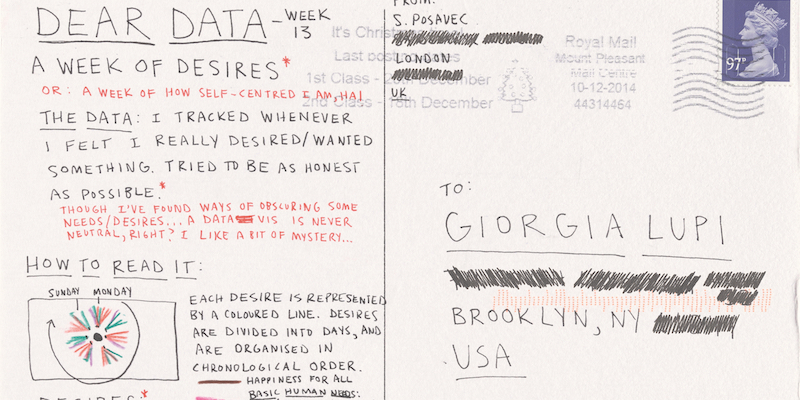 DEAR DATA - WEEK 13
A WEEK OF DESIRES*
OR: A WEEK OF HOW SELF-CENTRED I AM, HA!
THE DATA: I TRACKED WHENEVER
I FELT I REALLY DESIRED/WANTED
SOMETHING. TRIED TO BE AS HONEST
AS POSSIBLE.*
THOUGH I'VE FOUND WAYS OF OBSCURING SOME
NEEDS/DESIRES... A DATA VIS IS NEVER
NEUTRAL, RIGHT? I LIKE A BIT OF MYSTERY...
HOW TO READ IT:
SUNDAY MONDAY
EACH DESIRE IS REPRESENTED
BY A COLOURED LINE. DESIRES
ARE DIVIDED INTO DAYS, AND
ARE ORGANISED IN
CHRONOLOGICAL ORDER.
HAPPINESS FOR ALL
BASIC HUMAN NEEDS:
DESIRES:*
FROM:
S. POSAVEC
LONDON
UK
It's
Last
1st Class - December
2nd Class - 18th December
Royal Mail
Mount Pleasant
Mail Centre
10-12-2014
44314464
97P
TO:
GIORGIA LUPI
BROOKLYN, NY
USA